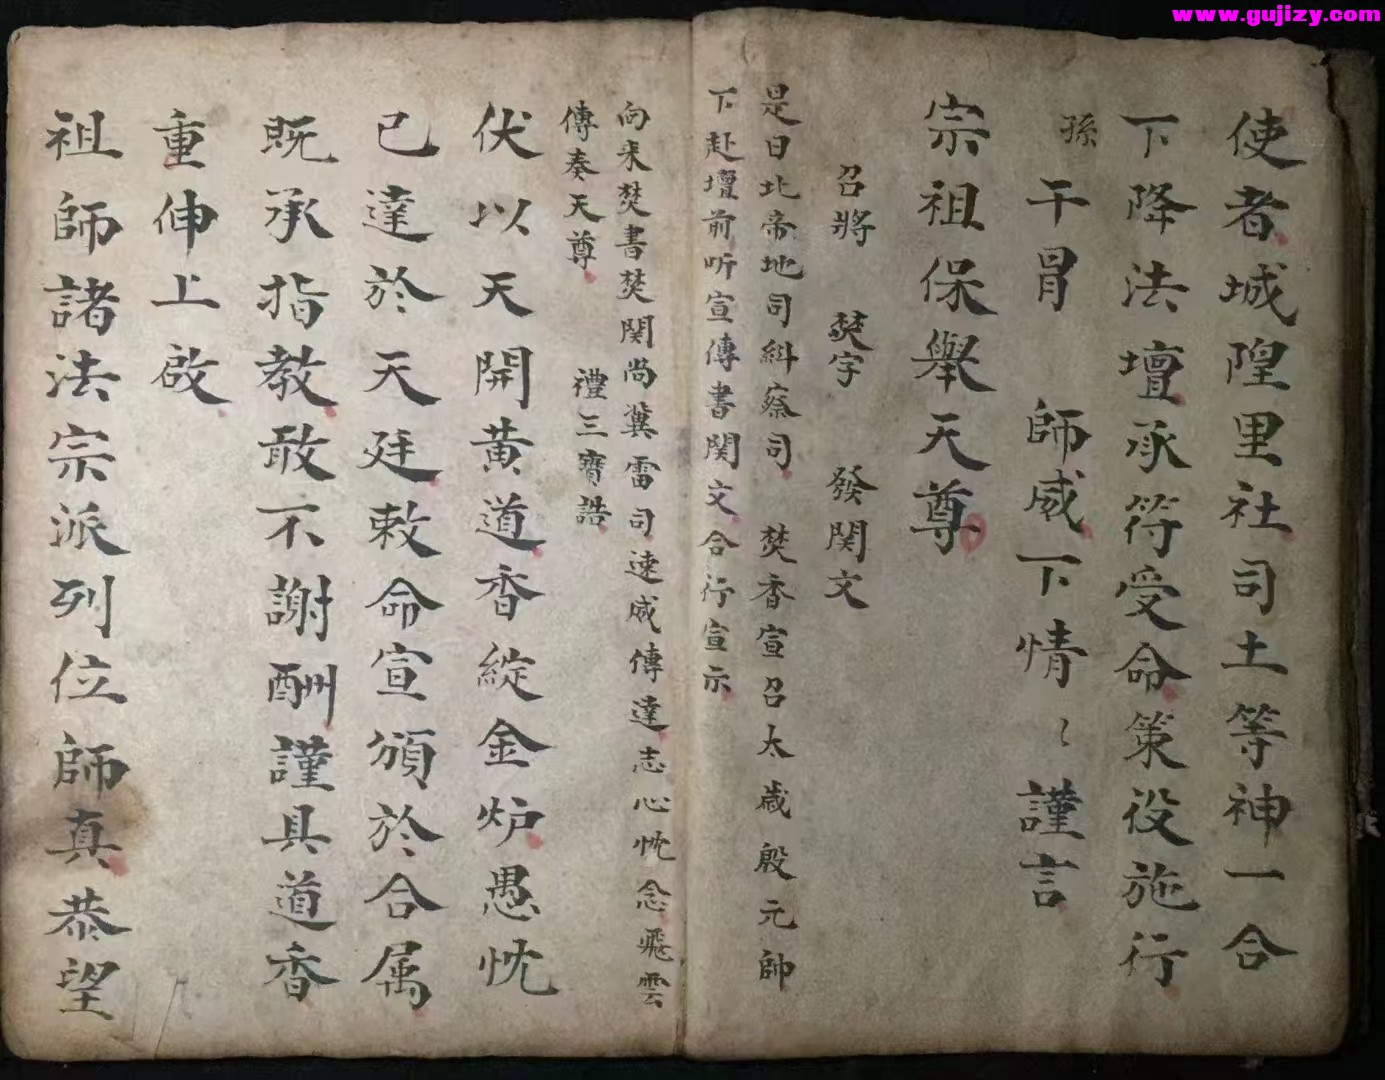 www.gujizy.com
使者城隍里社司土等神一合
下降法壇承符受命策役施行
孫 干冒 師威下情〻謹言
宗祖保舉天尊
召將 焚字 發関文
是日北帝地司糾察司 焚香宣召太歲殷元帥
下赴壇前听宣傳書関文合行宣示
向来焚書焚関尚冀雷司速威傳達志心忱念飛雲
傳奏天尊 禮三寶誥
伏以天開黄道香綻金炉愚忱
已達於天廷敕命宣頒於合属
既承指教敢不謝酬謹具道香
重伸上啟
祖師諸法宗派列位師真恭望